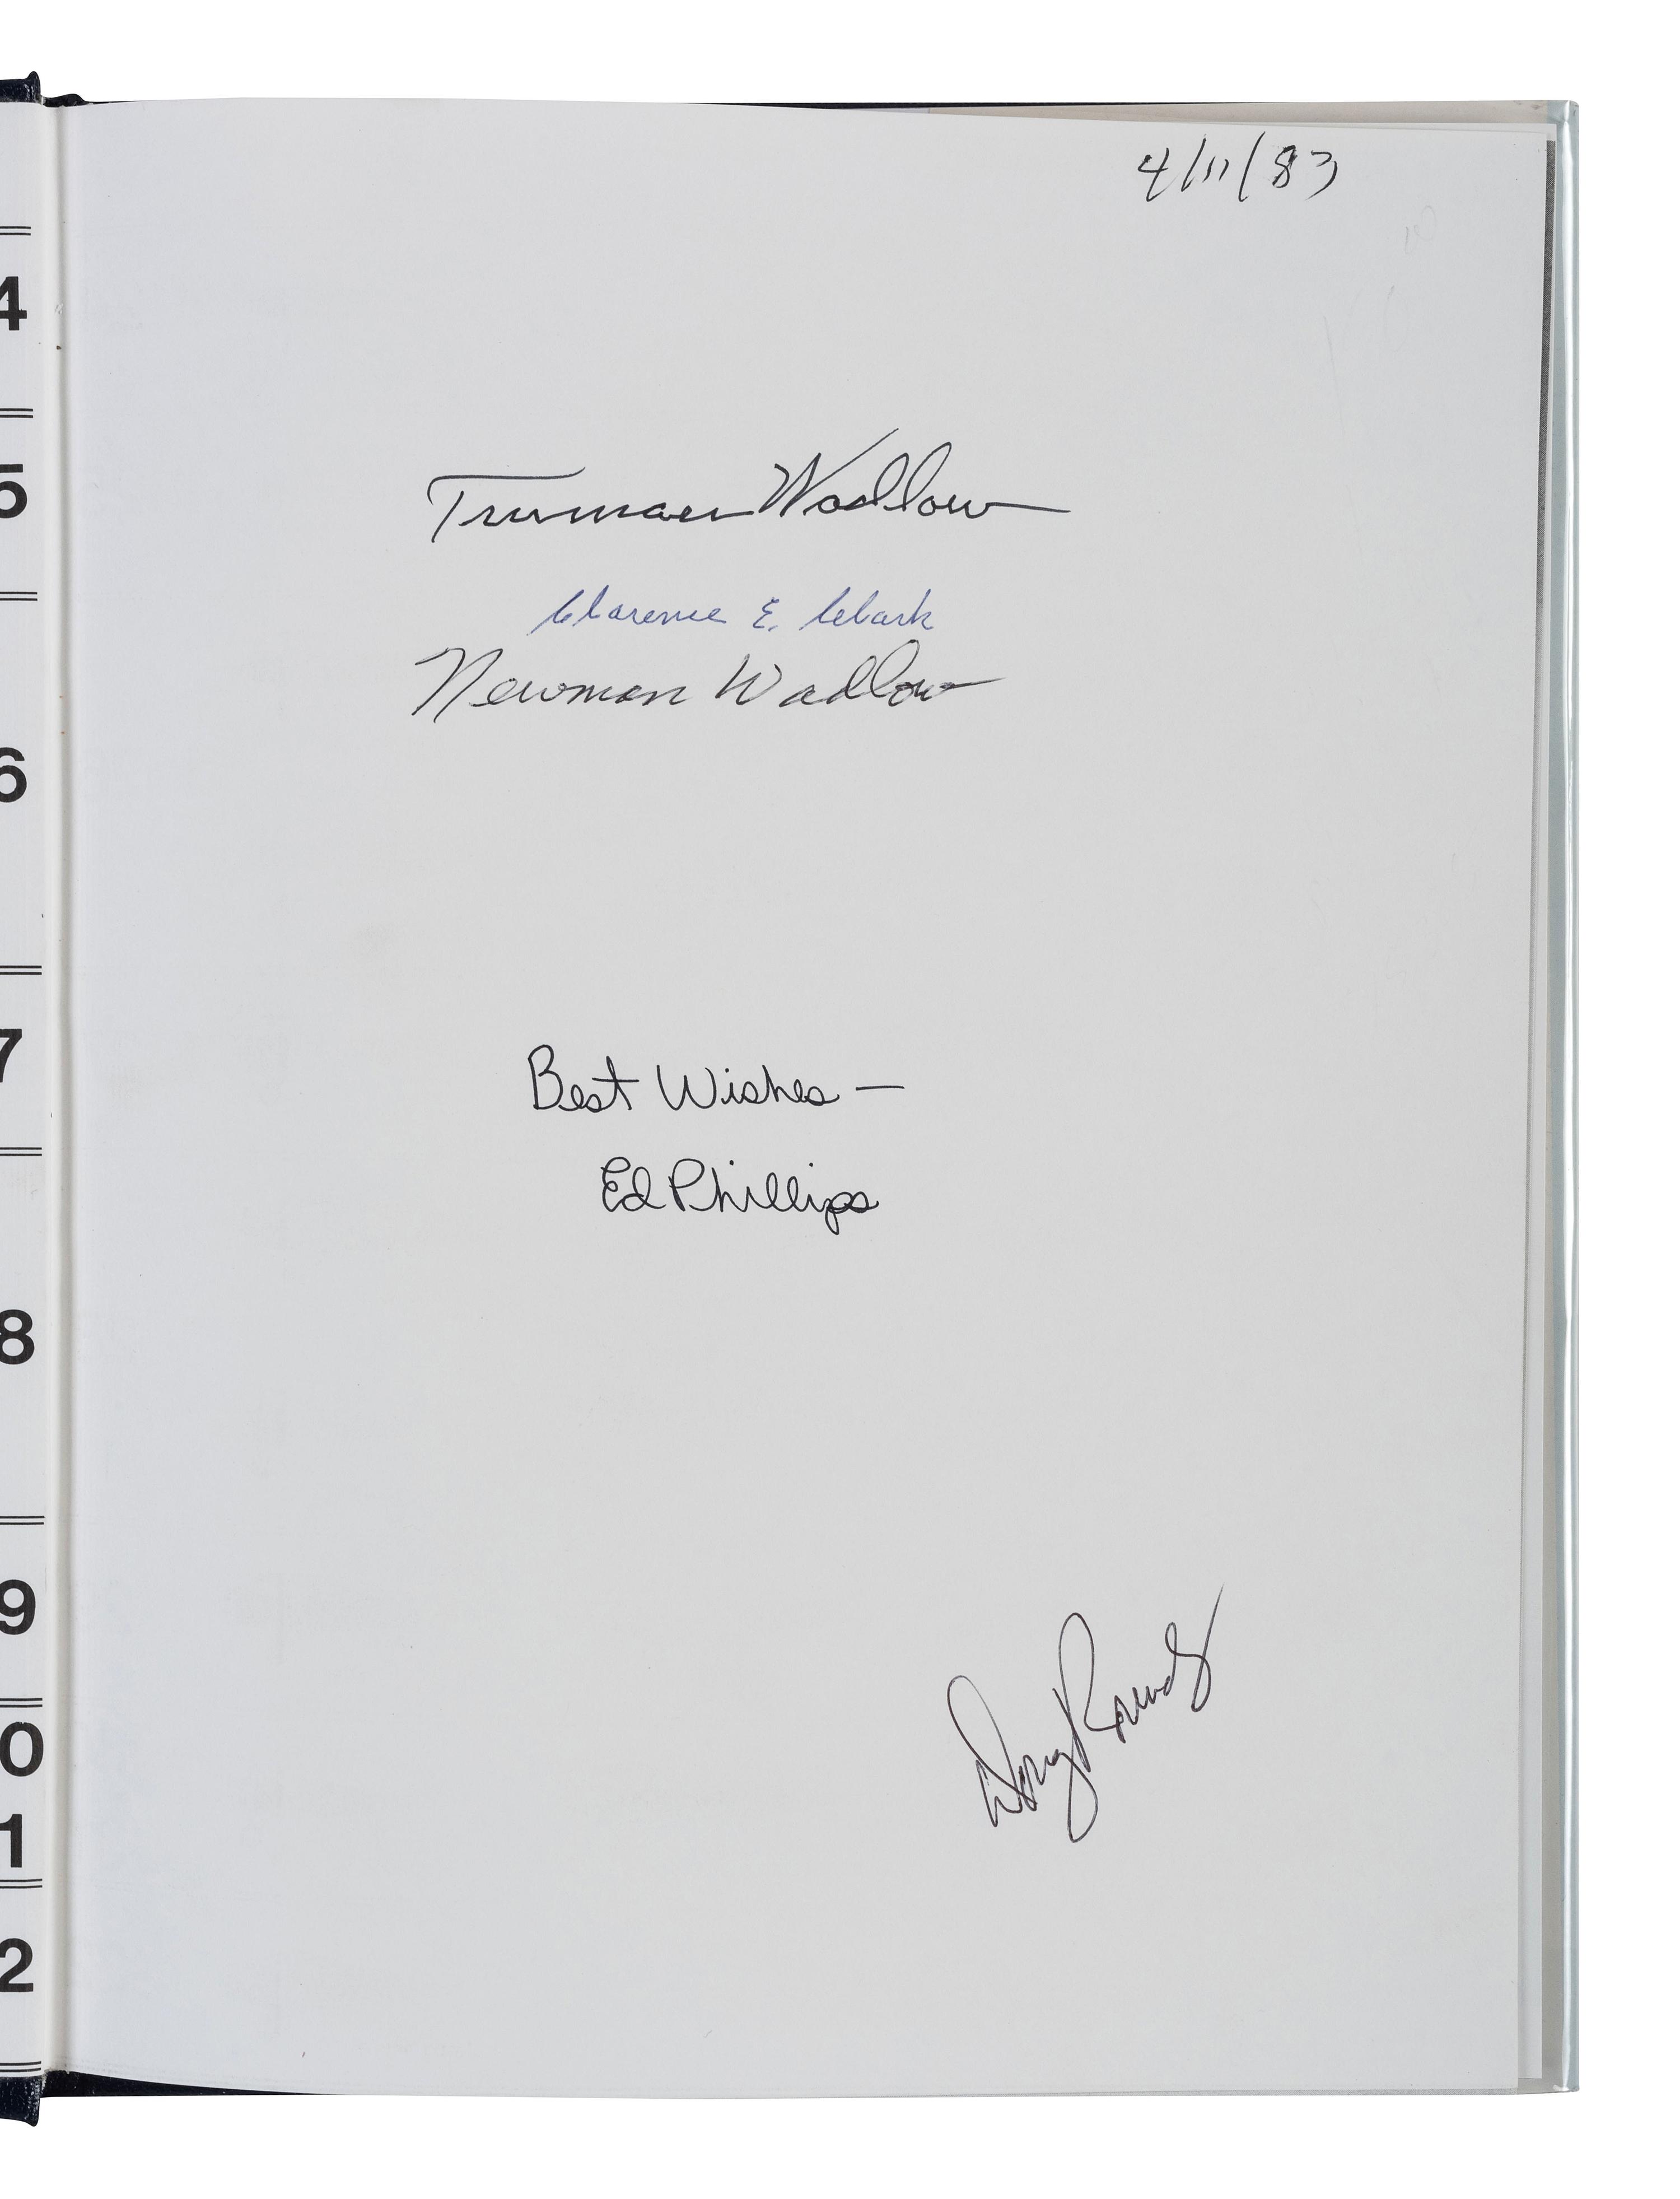 4/11/83
4
Truman Wadlow
5
Clarence E. Clark
Newman Wadlow
6
7
Best Wishes —
Ed Phillips
8
9
Doug Rounds
0
1
2